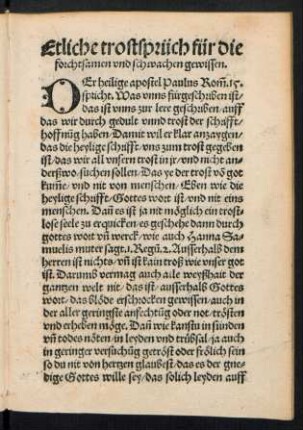 Etliche trostsprüch für die
forchtsamen vnd schwachen gewissen.
DEr heilige apostel Paulus Rom̃. 15.
spricht. Was vnns fürgeschriben ist/
das ist vnns zur lere geschriben/ auff
das wir durch gedult vnnd trost der schrifft/
hoffnũg haben/ Damit wil er klar anzaygen/
das die heylige schrifft/ vns zum trost gegeben
ist/ das wir all vnsern trost in jr/ vnd nicht an-
derßwo/ suchen sollen/ Das ye der trost võ got
kum̃e/ vnd nit von menschen/ Eben wie die
heylige schrifft/ Gottes wort ist/ vnd nit eins
menschen. Dañ es ist ja nit möglich ein trost-
lose seele zu erquicken/ es geschehe dann durch
gottes wort vñ werck/ wie auch Hanna Sa-
muelis muter sagt/ 1. Regũ. 2. Ausserhalb den
herren ist nichts/ vñ ist kain trost wie vnser got
ist. Darumb vermag auch alle weyßhait der
gantzen welt nit/ das ist/ ausserhalb Gottes
wort/ das blöde erschrocken gewissen/ auch in
der aller geringste anfechtũg oder not/ trösten
vnd erheben möge. Dañ wie kanstu in sünden
vñ todes nöten/ in leyden vnd trübsal/ ja auch
in geringer versuchũg getröst oder frölich sein
so du nit von hertzen glaubest/ das es der gne-
dige Gottes wille sey/ das solich leyden auff